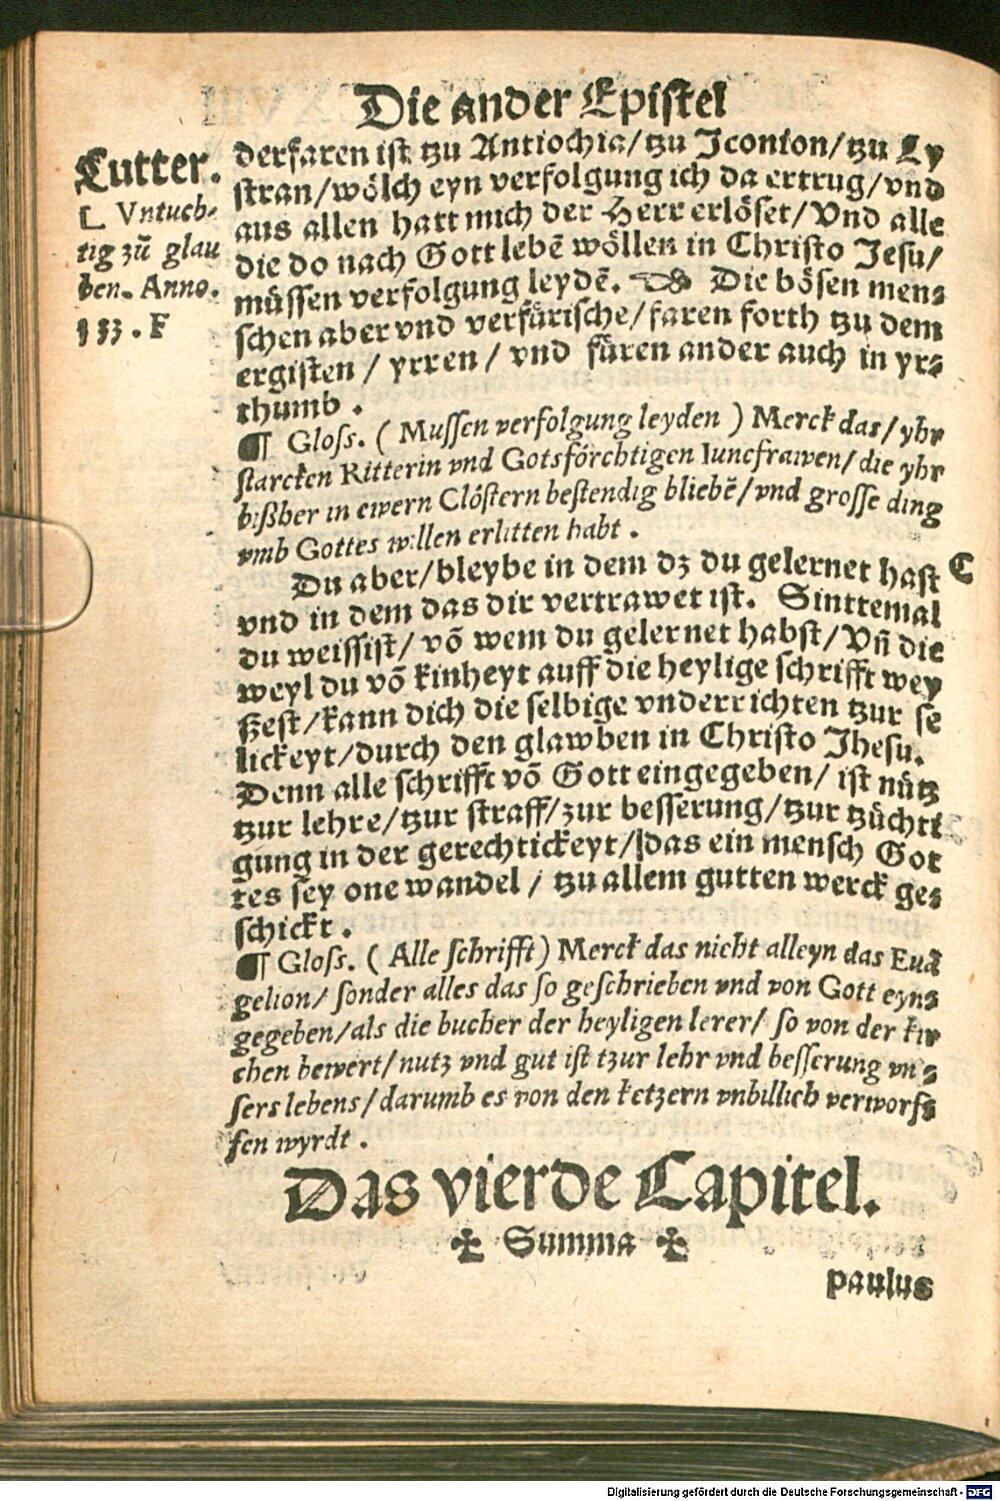 Die ander Epistel
Lutter.
⁅ Vntuch-
tig zů glau
ben. Anno.
133. F
derfaren ist tzu Antiochia/tzu Iconion/tzu Ly
stran/wölch eyn verfolgung ich da ertrug/vnd
aus allen hatt mich der Herr erlöset/Vnd alle
die do nach Gott lebē wöllen in Christo Jesu/
müssen verfolgung leydē. Die bösen men⸗
schen aber vnd verfürische/faren forth tzu dem
ergisten / yrren / vnd füren ander auch in yr⸗
thumb .
¶ Gloss. ( Mussen verfolgung leyden ) Merck das/yhr
starcken Ritterin vnd Gotsförchtigen Iuncfrawen/die yhr
bißher in ewern Clöstern bestendig bliebē/vnd grosse ding
vmb Gottes willen erlitten habt .
Du aber/bleybe in dem dz du gelernet hast
C
vnd in dem das dir vertrawet ist. Sinttemal
du weissist/ vō wem du gelernet habst/Vñ die
weyl du vō kinheyt auff die heylige schrifft wey
ssest/kann dich die selbige vnderrichten tzur se
lickeyt/durch den glawben in Christo Jhesu.
Denn alle schrifft vō Gott eingegeben/ ist nütz
tzur lehre/tzur straff/zur besserung/tzur tzüchti
gung in der gerechtickeyt/das ein mensch Got
tes sey one wandel / tzu allem gutten werck ge⸗
schickt .
¶ Gloss. ( Alle schrifft) Merck das nicht alleyn das Euā
gelion/ sonder alles das so geschrieben vnd von Gott eyn⸗
gegeben/als die bucher der heyligen lerer/ so von der kir
chen bewert/nutz vnd gut ist tzur lehr vnd besserung vn⸗
sers lebens/darumb es von den ketzern vnbillich verworf⸗
fen wyrdt .
Das vierde Capitel.
✠ Summa ✠
Paulus
Digitalisierung gefördert durch die Deutsche Forschungsgemeinschaft - DFG